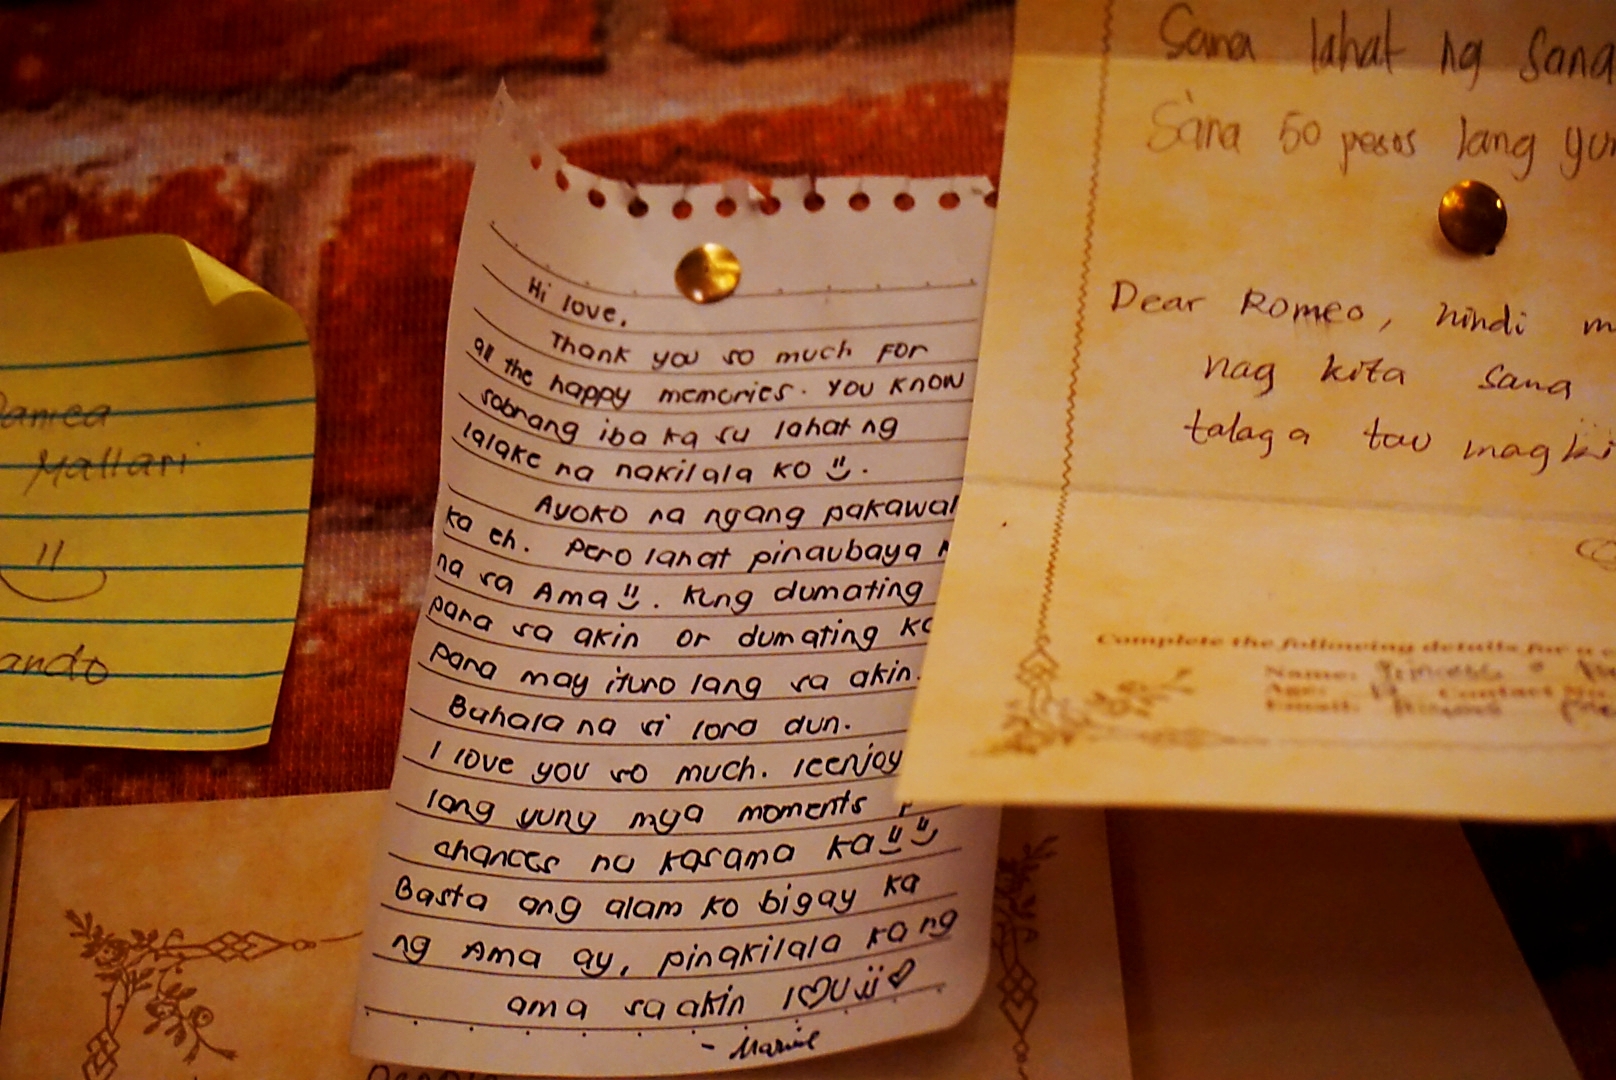 Hi love,
Thank you so much for
all the happy memories. You know
sobrang iba ka sa lahat ng
lalake na nakilala ko
Ayoko na ngang pakawal
ka eh. Pero lahat pinaubaya
na sa Ama. Kung dumating
para sa akin or dumating ka
para may ituro lang sa akin.
Bahala na si lord dun.
I love you so much. Ieenjoy
lang yung mga moments
chances na kasama ka
Basta ang alam ko bigay ka
ng Ama ay, pinakilala ka ng
ama sa akin I♡U♡
Sana lahat ng sana
Sana 50 pesos lang yun
Dear Romeo, hindi m
nag kita sana
talaga tau magki
Complete the following details for a
Name: Princess
Age: Contact No.
Email:
Mallari
ando